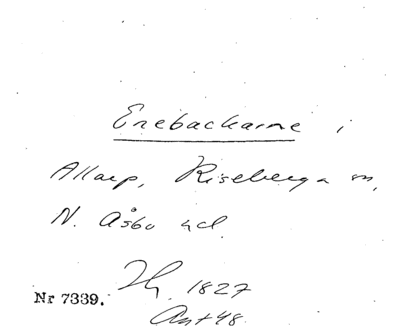 Enebackarne i
Allarp, Riseberga sn,
N. Åsbo hd.
1827
Nr 7339.
Ant 48.